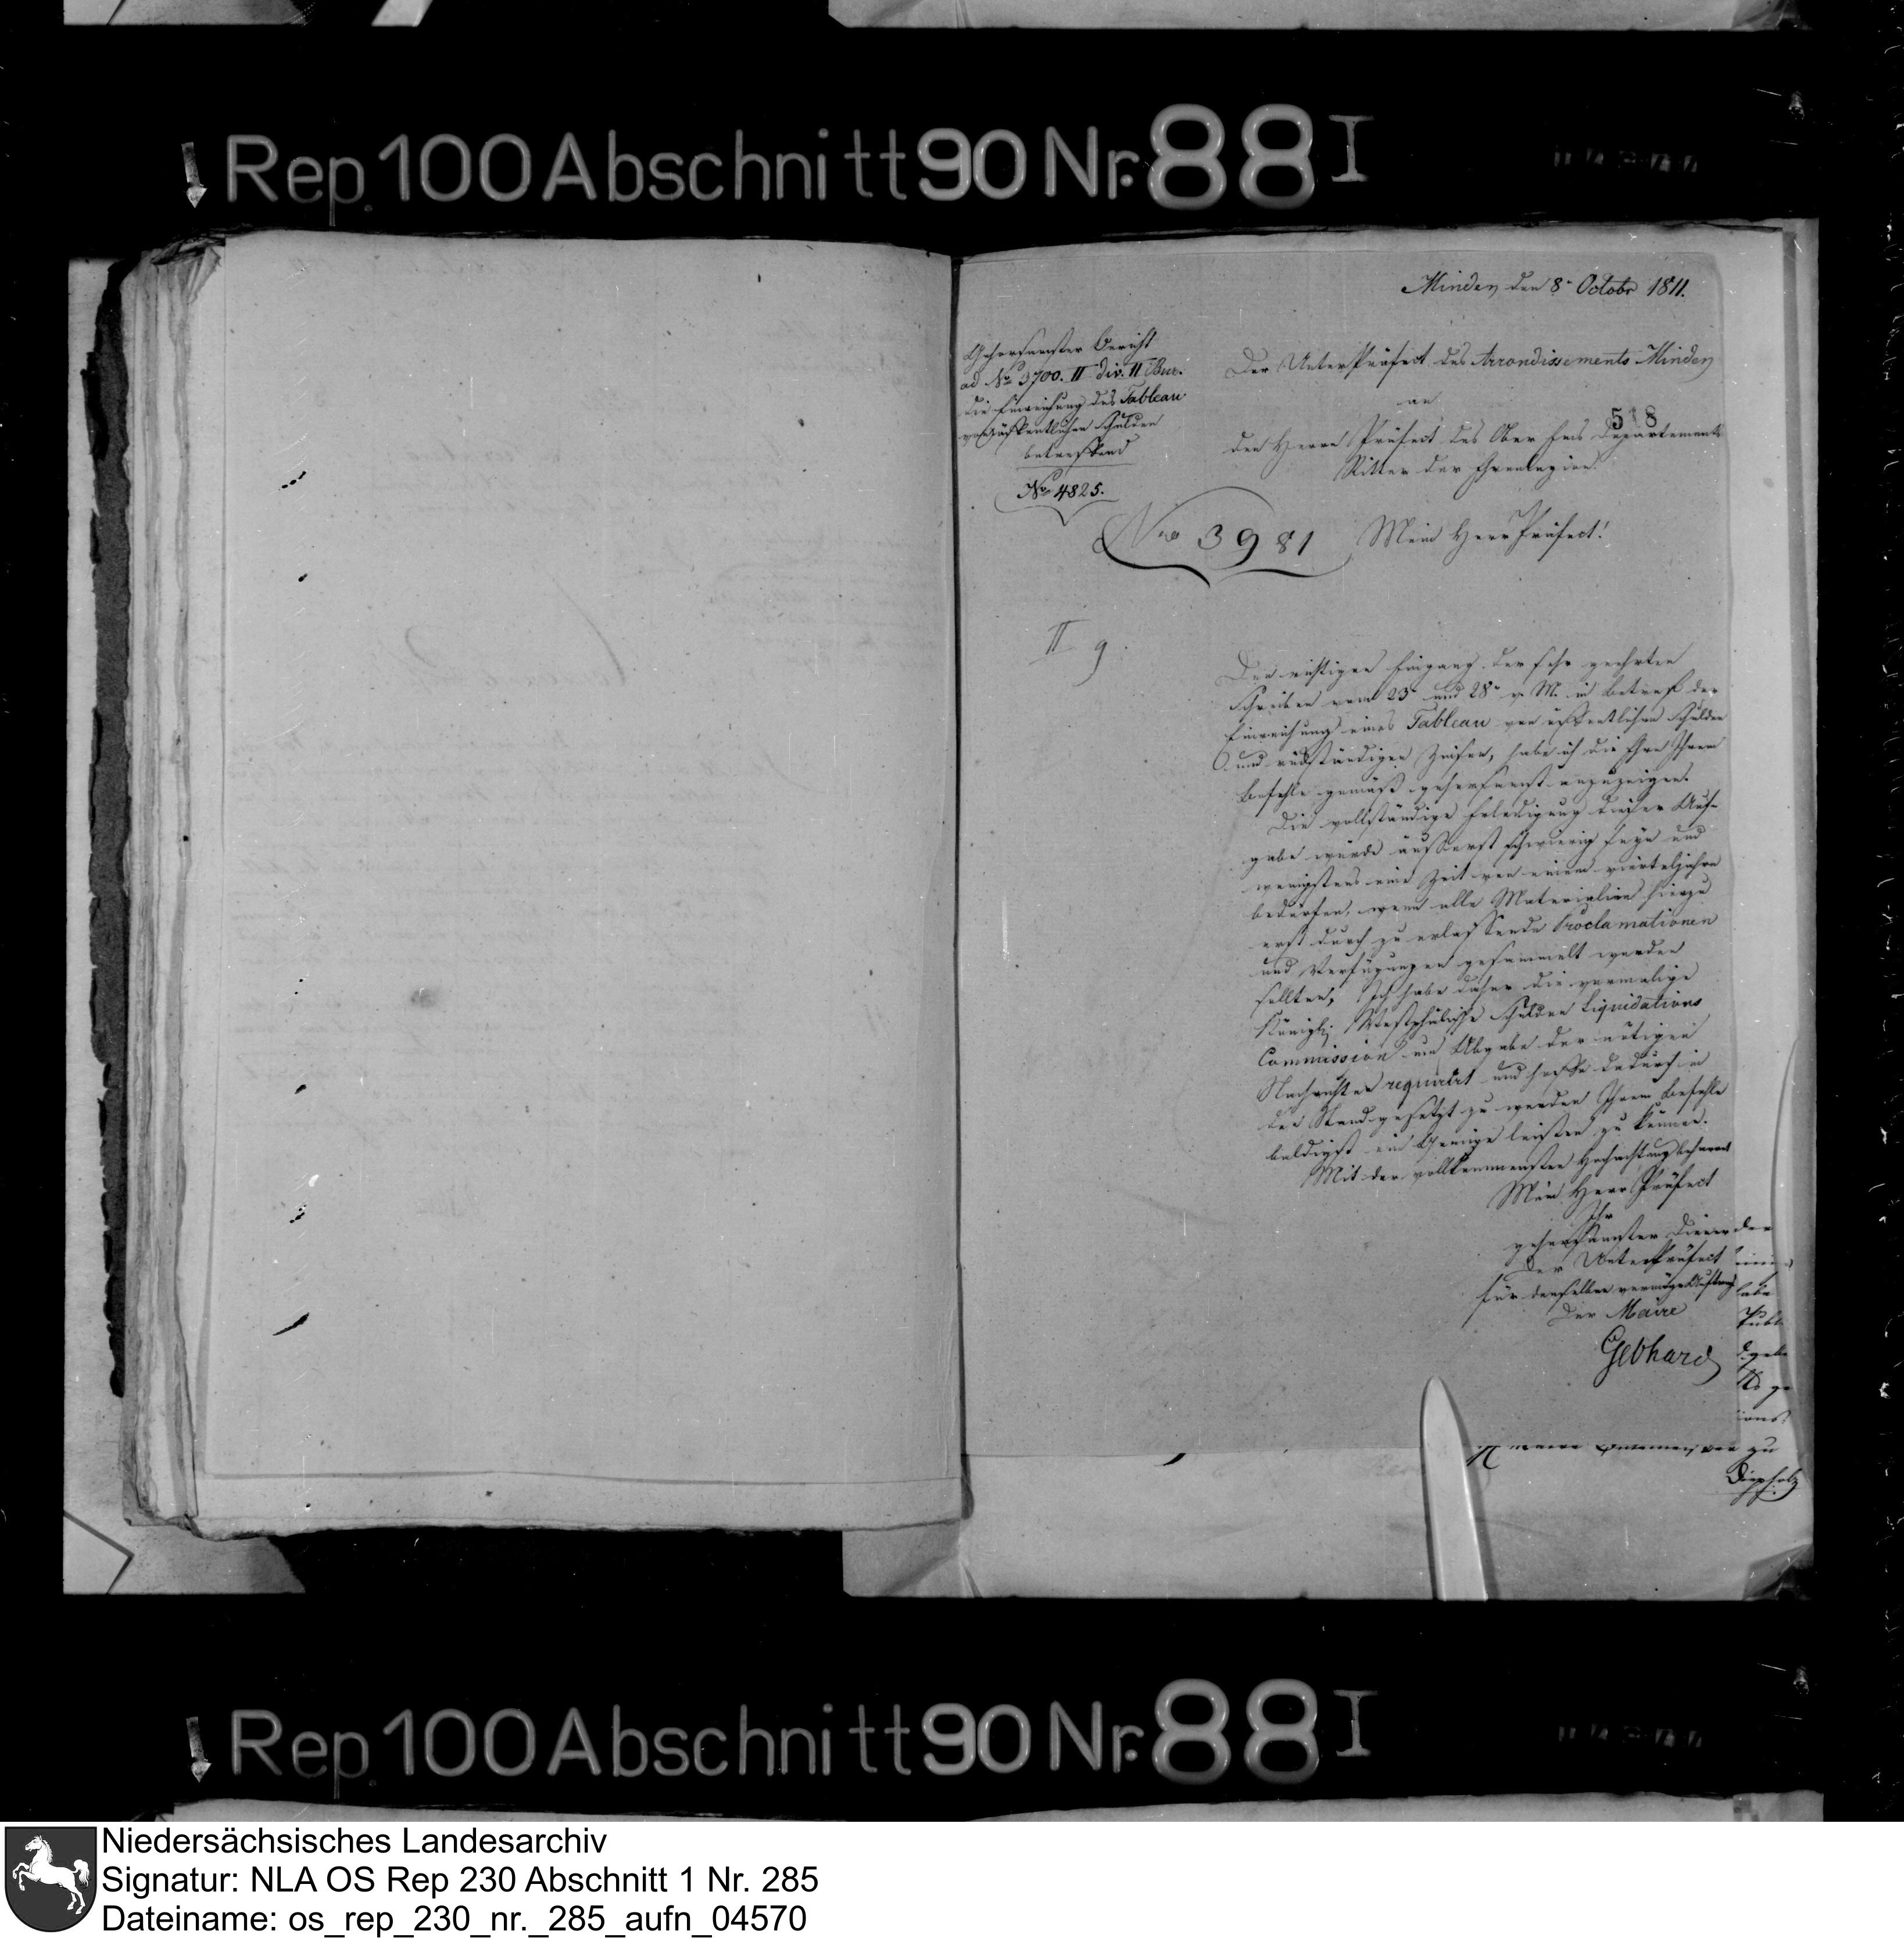 Rep. 100 Abschnitt 90 Nr. 88 I
Minden den 8n Octobr 1811.
Gehorsamster Bericht
ad No 3700. II div. II Bur.
die Einreichung des Tableau
von öffentlichen Schulden
betreffend
No 4825.
Der UnterPräfect des Arrondissements Minden
an
den Herrn Präfect des Ober Ems Departements
Ritter der Ehrenlegion.
518
Nro 3981
Mein Herr Präfect!
II 9.
Den richtigen Eingang der sehr geehrten
Schreiben vom 23n und 28n v. M. in Betreff der
Einreichung eines Tableau von öffentlichen Schulden
und rückständigen Zinsen, habe ich die Ehre Ihrem
Befehle gemäß gehorsamst anzuzeigen.
Die vollständige Erledigung dieser Auf-
gabe würde äußerst schwierig seyn und
wenigstens eine Zeit von einem vierteljahre
bedürfen, wenn alle Materialien hierzu
erst durch zu erlassende Proclamationen
und Verfügungen gesammelt werden
sollten, Ich habe daher die vormalige
Königl. Westphälische Schulden Liquidations
Commission um Abgabe der nötigen
Nachrichten requirirt und hoffe dadurch in
den Stand gesetzt zu werden Ihrem Befehle
baldigst ein Genüge leisten zu können.
Mit der vollkommensten Hochachtung beharret
Mein Herr Präfect
Ihr
gehorsamster Diener
Der UnterPräfect
für denselben vermöge Auftrag
Der Maire
Gebhard
zu
Diepholz
Rep. 100 Abschnitt 90 Nr. 88 I
Niedersächsisches Landesarchiv
Signatur: NLA OS Rep 230 Abschnitt 1 Nr. 285
Dateiname: os_rep_230_nr._285_aufn_04570